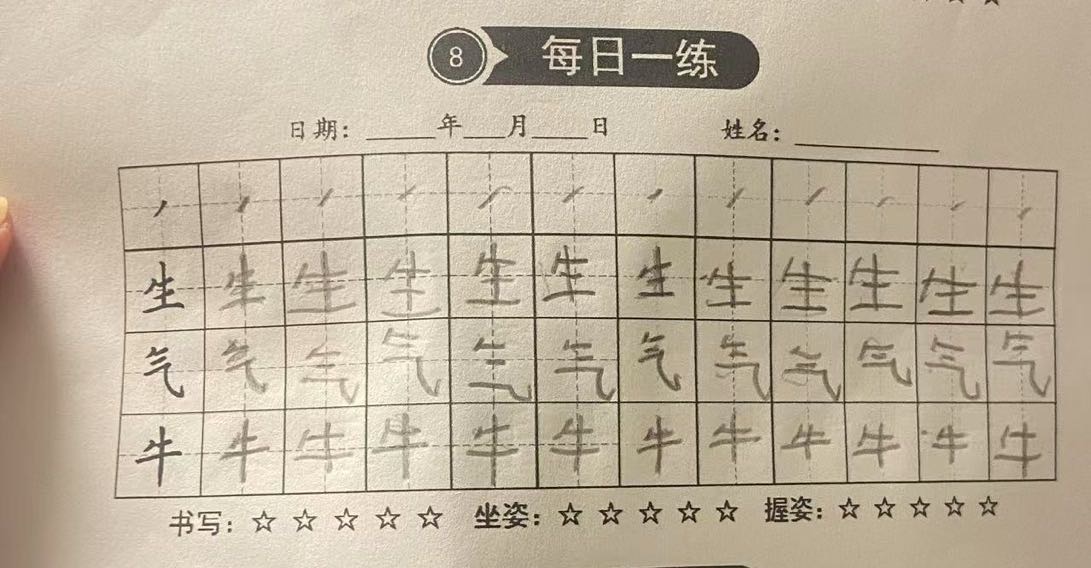 8 每日一练
日期：_____年___月____日 姓名：__________
生 生 生 生 生 生 生 生 生 生 生 生
气 气 气 气 气 气 气 气 气 气 气 气
牛 牛 牛 牛 牛 牛 牛 牛 牛 牛 牛 牛
书写：☆ ☆ ☆ ☆ ☆ 坐姿：☆ ☆ ☆ ☆ ☆ 握姿：☆ ☆ ☆ ☆ ☆